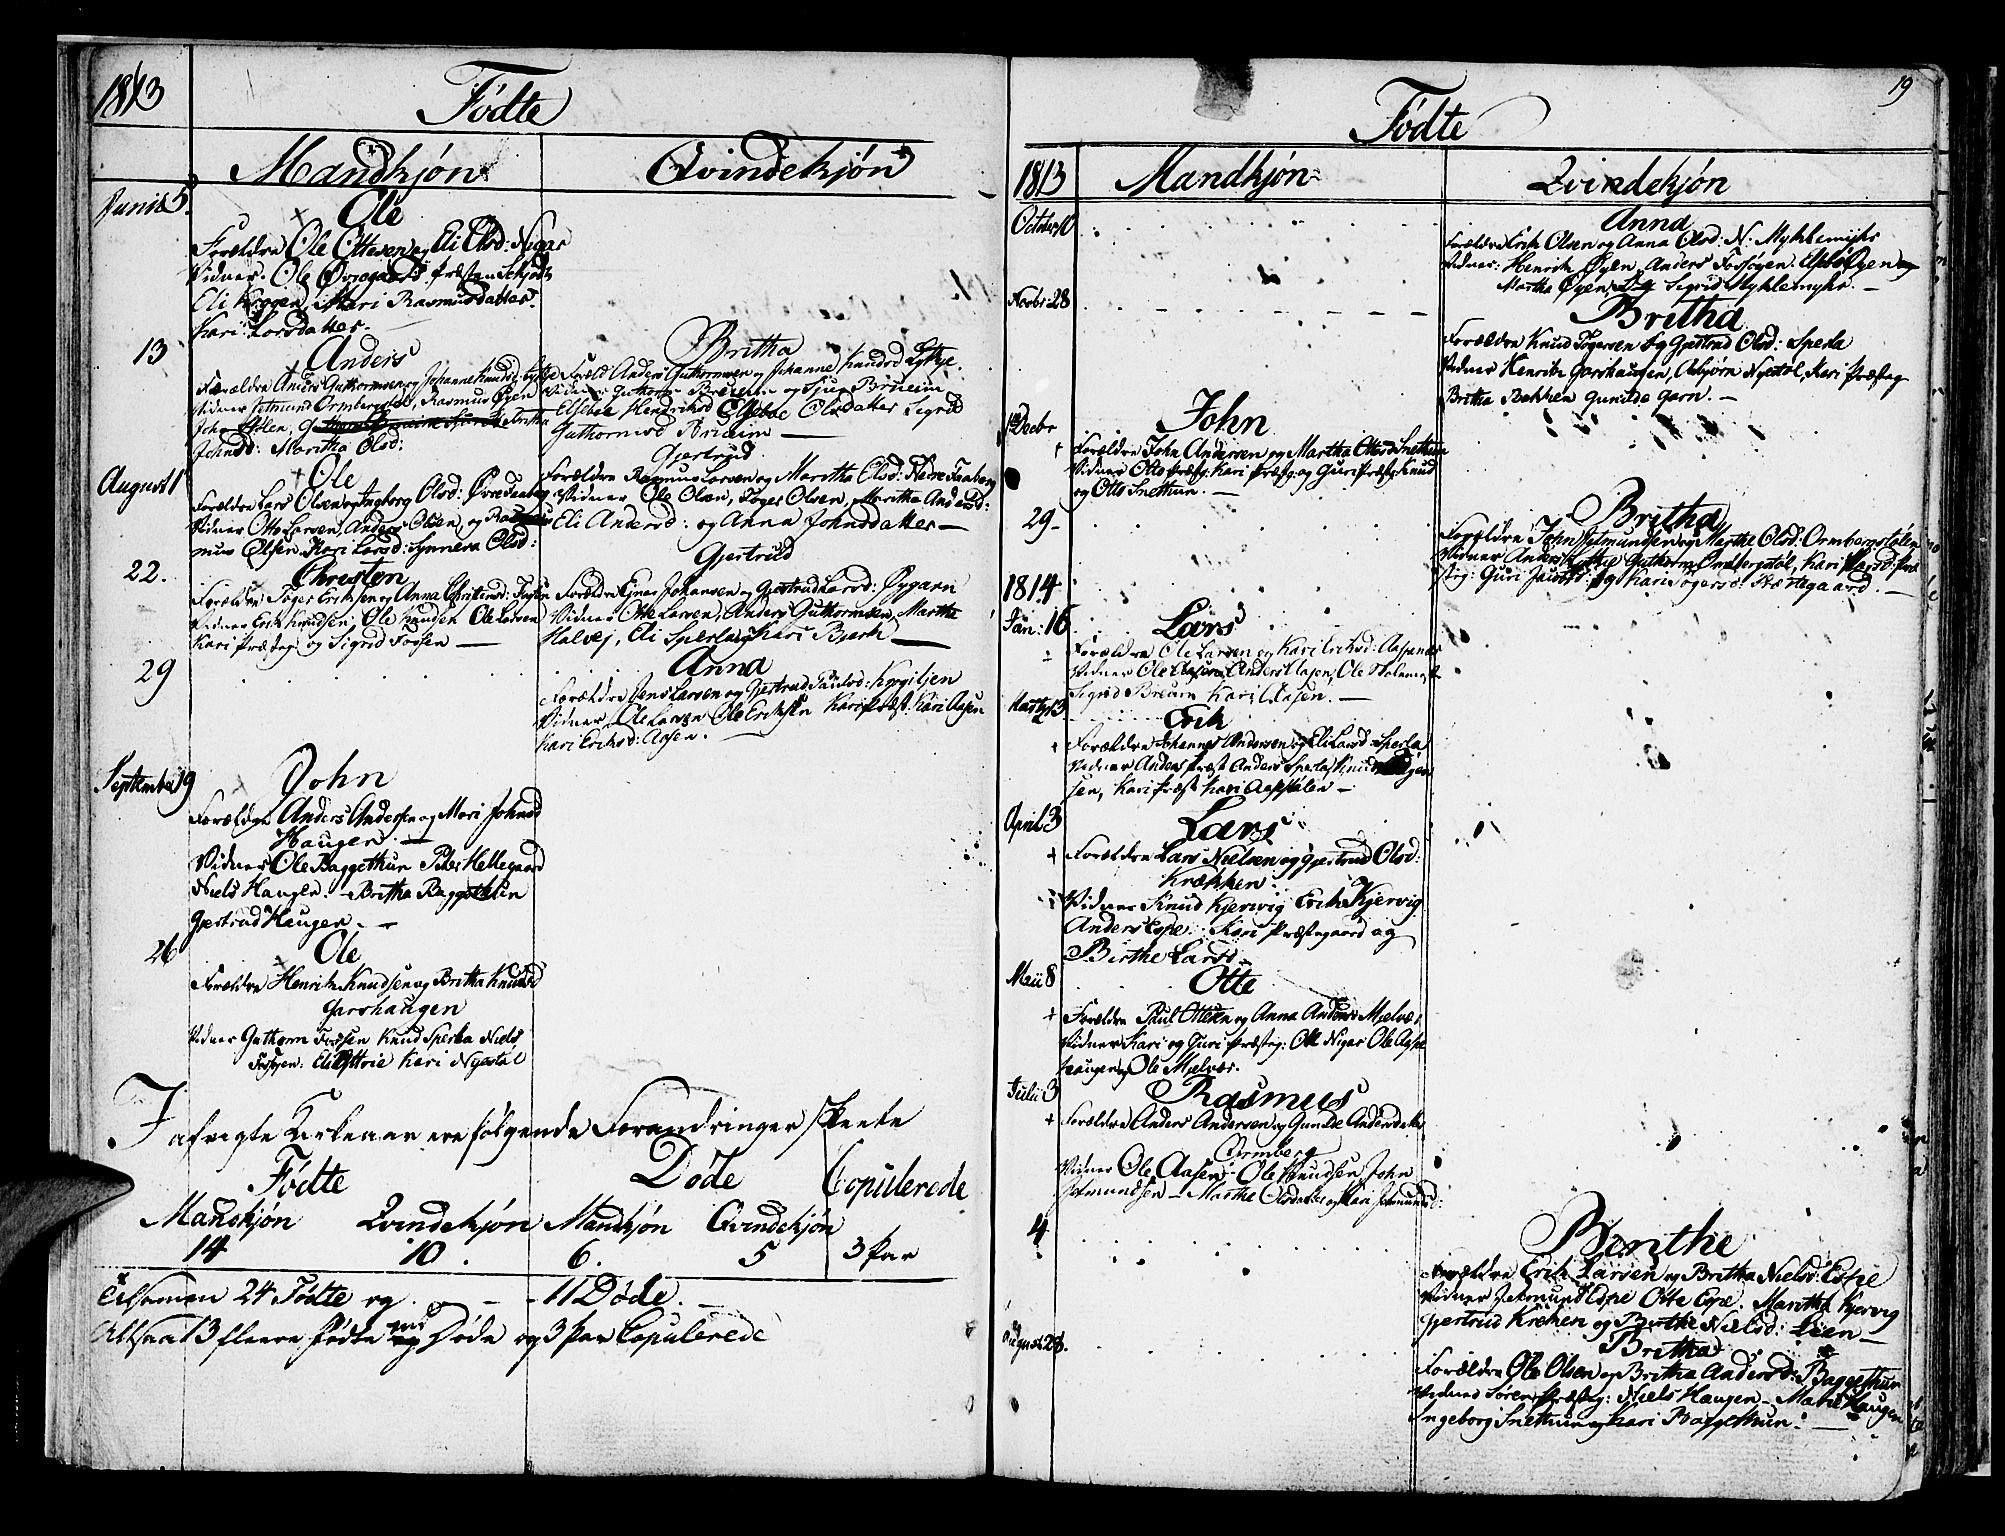 1813
Fødte
Mandkjøn
Qvindekjøn
Junii 5.
Ole
Forældre Ole Ottesen og Eli Olsd: Nigar
Vidner. Ole Præsten
Eli Mari Rasmusdatter.
Kari Larsdatter.
13
Anders
Forældre Anders Guthormsen og Johanne Knudsd:
Vidner Jetmund Ormbergstøl, Rasmus Øyen
John Guthorm
Johnsd: Maritha Olsd:
Britha
Foræld Anders Guthormsen og Johanne Knudsd
Vidner Guthorm Brueim og Siur Brueim
Elsebee Hendriksd Elsebee Olsdatter Sigrid
Guthormsd Brueim —
August 1
Ole
Forældre Lars Olsen og Ingeborg Olsd:
Vidner Otto Larsen, Anders Olsen, og Ras
mus Olsen. Kari Larsd: Synneva Olsd:
Gjertrud
Forældre Rasmus Larsen og Maritha Olsd: Nedre
Vidner Ole Olsen, Tøger Olsen, Maritha Andersd:
Eli Andersd: og Anna Johnsdatter —
22.
Christen
Forældre Tøger Eriksen og Anna Christensd:
Vidner Erik Knudsen, Ole Knudsen Ole Larsen
Kari Præsteg og Sigrid Fossen —
Gjertrud
Forældre Ejner Johansen og Gjertrud Larsd: Øygarn
Vidner Otte Larsen, Anders Guthormsen, Martha
Halvej, Eli Sperla og Kari Bierk —
29
Anna
Forældre Jens Larsen og Gjertrud Paulsd:
Vidner, Ole Larsen Ole Eriksen Kari Præst: Kari Aasen
Kari Eriksd: Aasen.
September 19
John
Forældre Anders Andersen og Mari Johnsd
Haugen. —
Vidner Ole Baggethun Peder Hellegaard
Niels Haugen. Britha Baggethun
Gjertrud Haugen. —
26
Ole
Forældre Henrik Knudsen og Britha Knudsd
Garshaugen
Vidner Guthorm Fossen Knud Sperla Niels
Fosøyen: Eli Kari Nystøl
I afvigte Kirkeaar ere følgende Forandringer skeete
Fødte
Døde
Copulerede
Mandkjøn Qvindekjøn Mandkjøn Qvindekjøn
14 10. 6. 5 3 Par
Tilsamen 24 Fødte og - - 11 Døde.
Altsaa 13 fleere Fødte end Døde og 3 Par Copulerede
19
Fødte
1813
Mandkjøn
Qvindekjøn
October 10
Anna
Forældre Erik Olsen og Anna Olsd: N: Myklemyhr
Vidner: Henrik Øyen, Anders Fossøyen. Øyen og
Martha Øyen, Sigrid Myklemyhr. —
Novbr: 28
Britha
Forældre Knud Tøgersen og Gjertrud Olsd: Sperla
Vidner Henrik Garshaugen, Asbjørn Nystøl, Kari Præsteg
Britha Bakken Gunilda Garn. —
Decbr
John
Forældre John Andersen og Martha Ottesd Snethun
Vidner Otto Præsteg: Kari Præsteg. og Guri Præst: Knud
og Otto Snethun. —
29 -
Britha
Forældre John Jetmundsen og Marthe Olsd: Ormbergstølen
Vidner Anders Guthorm Ormbergstøl, Kari Larsd: Præ
steg: Guri og Kari Tøgersd Præstegaard. —
1814
Jan: 16
Lars
Forældre Ole Larsen og Kari Eriksd: Aasen
Vidner Ole Aasen, Anders Aasen, Ole
Sigrid Brueim Kari Aasen. —
Marty 13
Erik
Forældre Johannes Andersen og Eli Larsd: Sperla
Vidner Anders Præst Anders Sperla, Knud
sen, Kari Præst Kari —
April 3
Lars
Forældre Lars Nielsen og Gjertrud Olsd:
Krækken.
Vidner Knud Kjervig Erik Kjervig
Anders Espe. Kari Præstegaard og
Birthe Larsd
Maii 8
Otte
Forældre Paul Ottesen og Anna Andersd Mjelvær
Vidner Kari og Guri Præsteg: Ole Nigar Ole Aspe
haugen og Ole Mjelvær.
Julii 3
Rasmus
Forældre Anders Andersen og Gunilde Andersdatter
Ormberg
Vidner Ole Aasen, Ole Knudsen, John
Jetmundsen — Marthe Olsdatter og Kari Jetmundsd:
4
Berithe
Forældre Erik Larsen og Britha Nielsd: Espe
Vidner Jetmund Espe Otte Espe. Maritha Kjervig
Gjertrud Kreken og Birthe Nielsd: Lien —
August 28.
Britha
Forældre Ole Olsen og Britha Andersd: Baggethun
Vidner Søren Præsteg: Niels Haugen - Mari Haugen
Ingeborg Snethun og Kari Baggethun. —